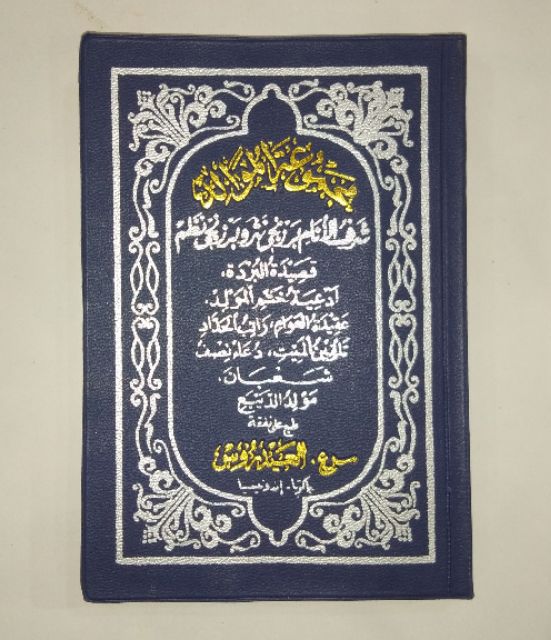 مجموعة الموالد
شرف الأنام برزنجى نثر وبرزنجى نظم
قصيدة البردة،
ادعية ختم المولد،
عقيدة العوام، راتب الحداد
تلقين الميت، دعاء نصف
شعبان،
مولد الديبع
طبع على نفقة
س.ع. العيدروس
جاكرتا - إندونيسا